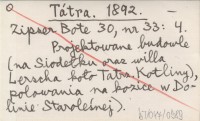 Tátra. 1892.
Zipser Bote 30, nr 33: 4.
Projektowane budowle
(na Siodełku oraz willa
Lerscha koło Tatra Kotliny),
polowania na kozice w Do-
linie Staroleśnej).